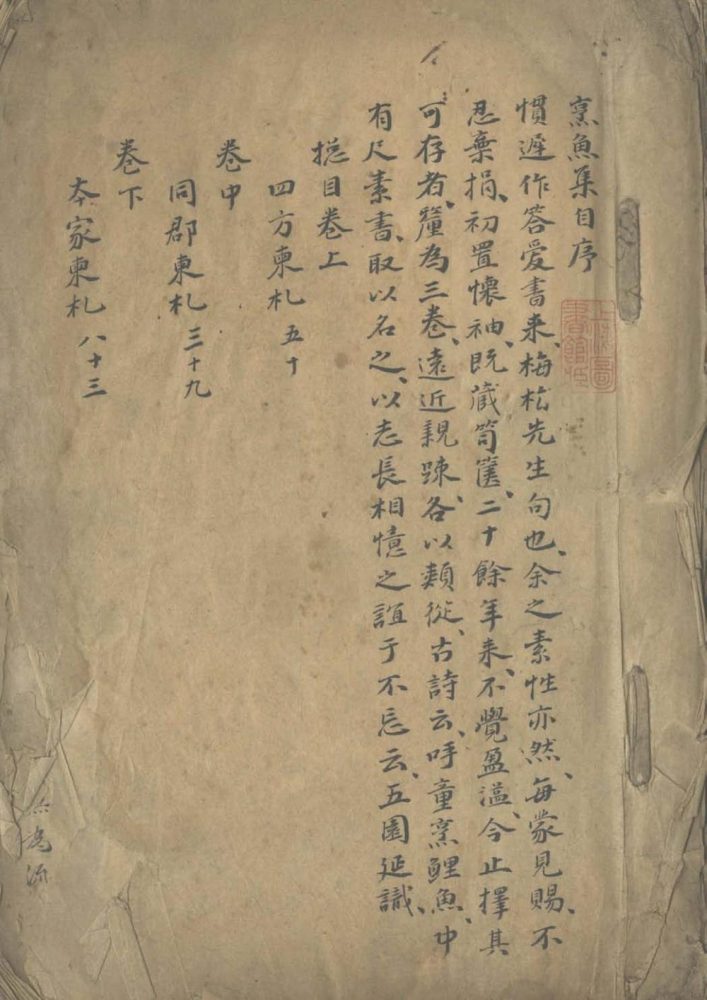 烹魚集目序
慣遲作答愛書来、梅村先生句也、余之素性亦然、每蒙見賜、不
忍棄捐、初置懷袖、既蔵笥篋、二十餘年来、不覺盈溢、今止擇其
可存者、釐為三卷、遠近親踈、各以類從、古詩云、呼童烹鯉魚、中
有尺素書、取以名之、以志長相憶之誼于不忘云、五園延識、
捴目卷上
四方柬札 五十
卷中
同郡柬札 三十九
卷下
本家柬札 八十三
上海圖
書館臧